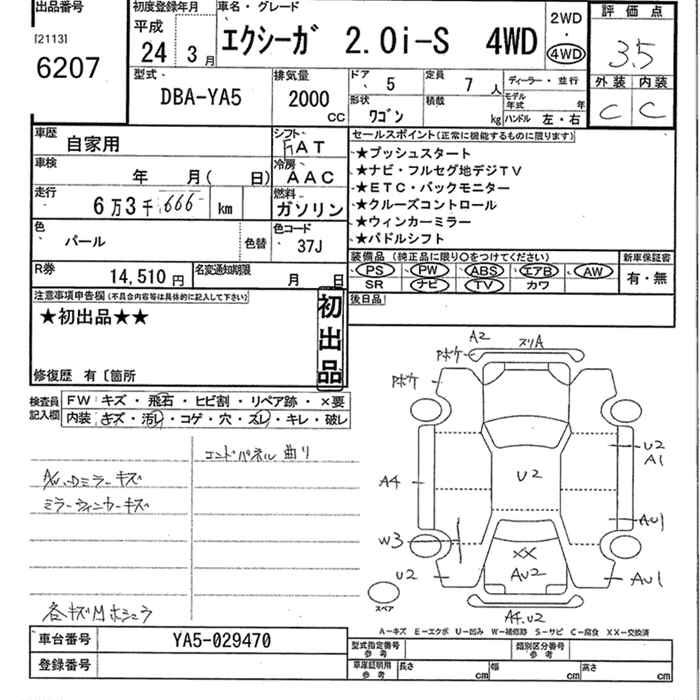 出品番号
[2113]
6207
初度登録年月
平成
24 3月
車名・グレード
エクシーガ 2.0i-S 4WD
2WD
・
4WD
評価点
3.5
外装 内装
C C
型式
DBA-YA5
排気量
2000
CC
ドア
5
定員
7 人
ディーラー・並行
形状
ワゴン
積載
kg
モデル年式 年
ハンドル 左・右
車歴
自家用
シフト
FAT
車検
年 月( 日)
冷房
AAC
走行
6万3千666 km
燃料
ガソリン
色
パール
色替
色コード
37J
R券
14,510円
名変通知期限
月 日
セールスポイント(正常に機能するものに限ります)
★プッシュスタート
★ナビ・フルセグ地デジTV
★ETC・バックモニター
★クルーズコントロール
★ウィンカーミラー
★パドルシフト
装備品 (純正品に限り○をつけてください)
PS PW ABS エアB AW
SR ナビ TV カワ
新車保証書
有・無
後日品
注意事項申告欄(不具合内容等は具体的に記入して下さい)
★初出品★★
初出品
修復歴 有〔箇所
検査員記入欄
FW キズ・飛石・ヒビ割・リペア跡・×要
内装 キズ・汚レ・コゲ・穴・スレ・キレ・破レ
エンドパネル 曲り
AW、Dミラーキズ
ミラーウィンカーキズ
各キズMホシュウ
A2 スリA
Pボケ
Pボケ
U2
A1
A4
U2
AU1
W3
XX
U2
AU2
AU1
A4.U2
スペア
A-キズ E-エクボ U-凹み W-補修跡 S-サビ C-腐食 XX-交換済
車台番号
YA5-029470
登録番号
型式指定番号
参考
類別区分番号
参考
車庫証明用
参考
長さ cm 幅 cm 高さ cm